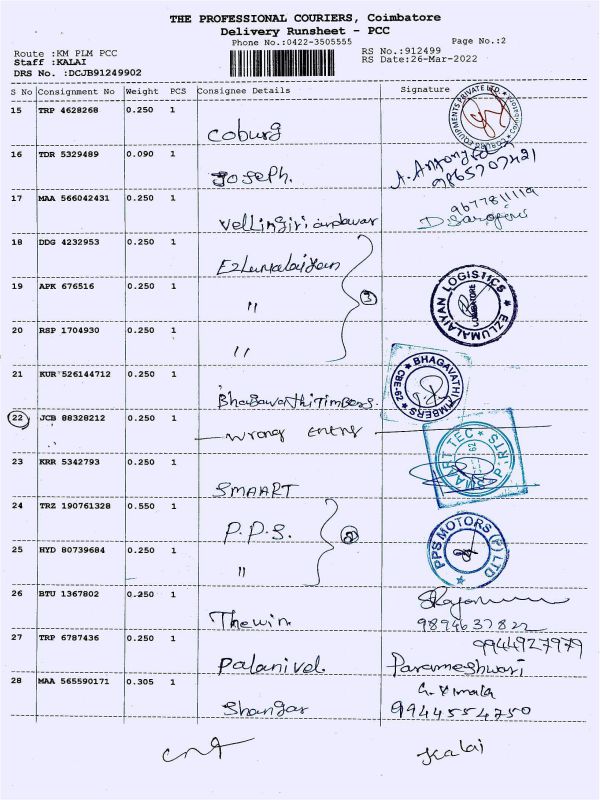 THE PROFESSIONAL COURIERS, Coimbatore
Delivery Runsheet - PCC
Phone No.:0422-3505555
Page No.:2
Route :KM PLM PCC
Staff :KALAI
DRS No. :DCJB91249902
RS No.:912499
RS Date:26-Mar-2022
S No Consignment No Weight PCS Consignee Details Signature
15 TRP 4628268 0.250 1
Coburg
16 TDR 5329489 0.090 1
Joseph.
9865707421
17 MAA 566042431 0.250 1
Vellingiri andavar
9677811119
18 DDG 4232953 0.250 1
Ezlumalaiyan
19 APK 676516 0.250 1
"
3
EZLUMALAIYAN LOGISTICS
COIMBATORE
20 RSP 1704930 0.250 1
"
21 KUR 526144712 0.250 1
Bhagawathi Timbers.
BHAGAVATHI TIMBERS
CBE-62
22 JCB 88328212 0.250 1
Wrong entry
23 KRR 5342793 0.250 1
SMAART
24 TRZ 190761328 0.550 1
P.P.S.
2
PPS MOTORS (P) LTD
25 HYD 80739684 0.250 1
"
26 BTU 1367802 0.250 1
Thewin
9894637822
27 TRP 6787436 0.250 1
9944927979
Palanivel. Parameshwari
28 MAA 565590171 0.305 1
Shangar
9944554750
Kalai